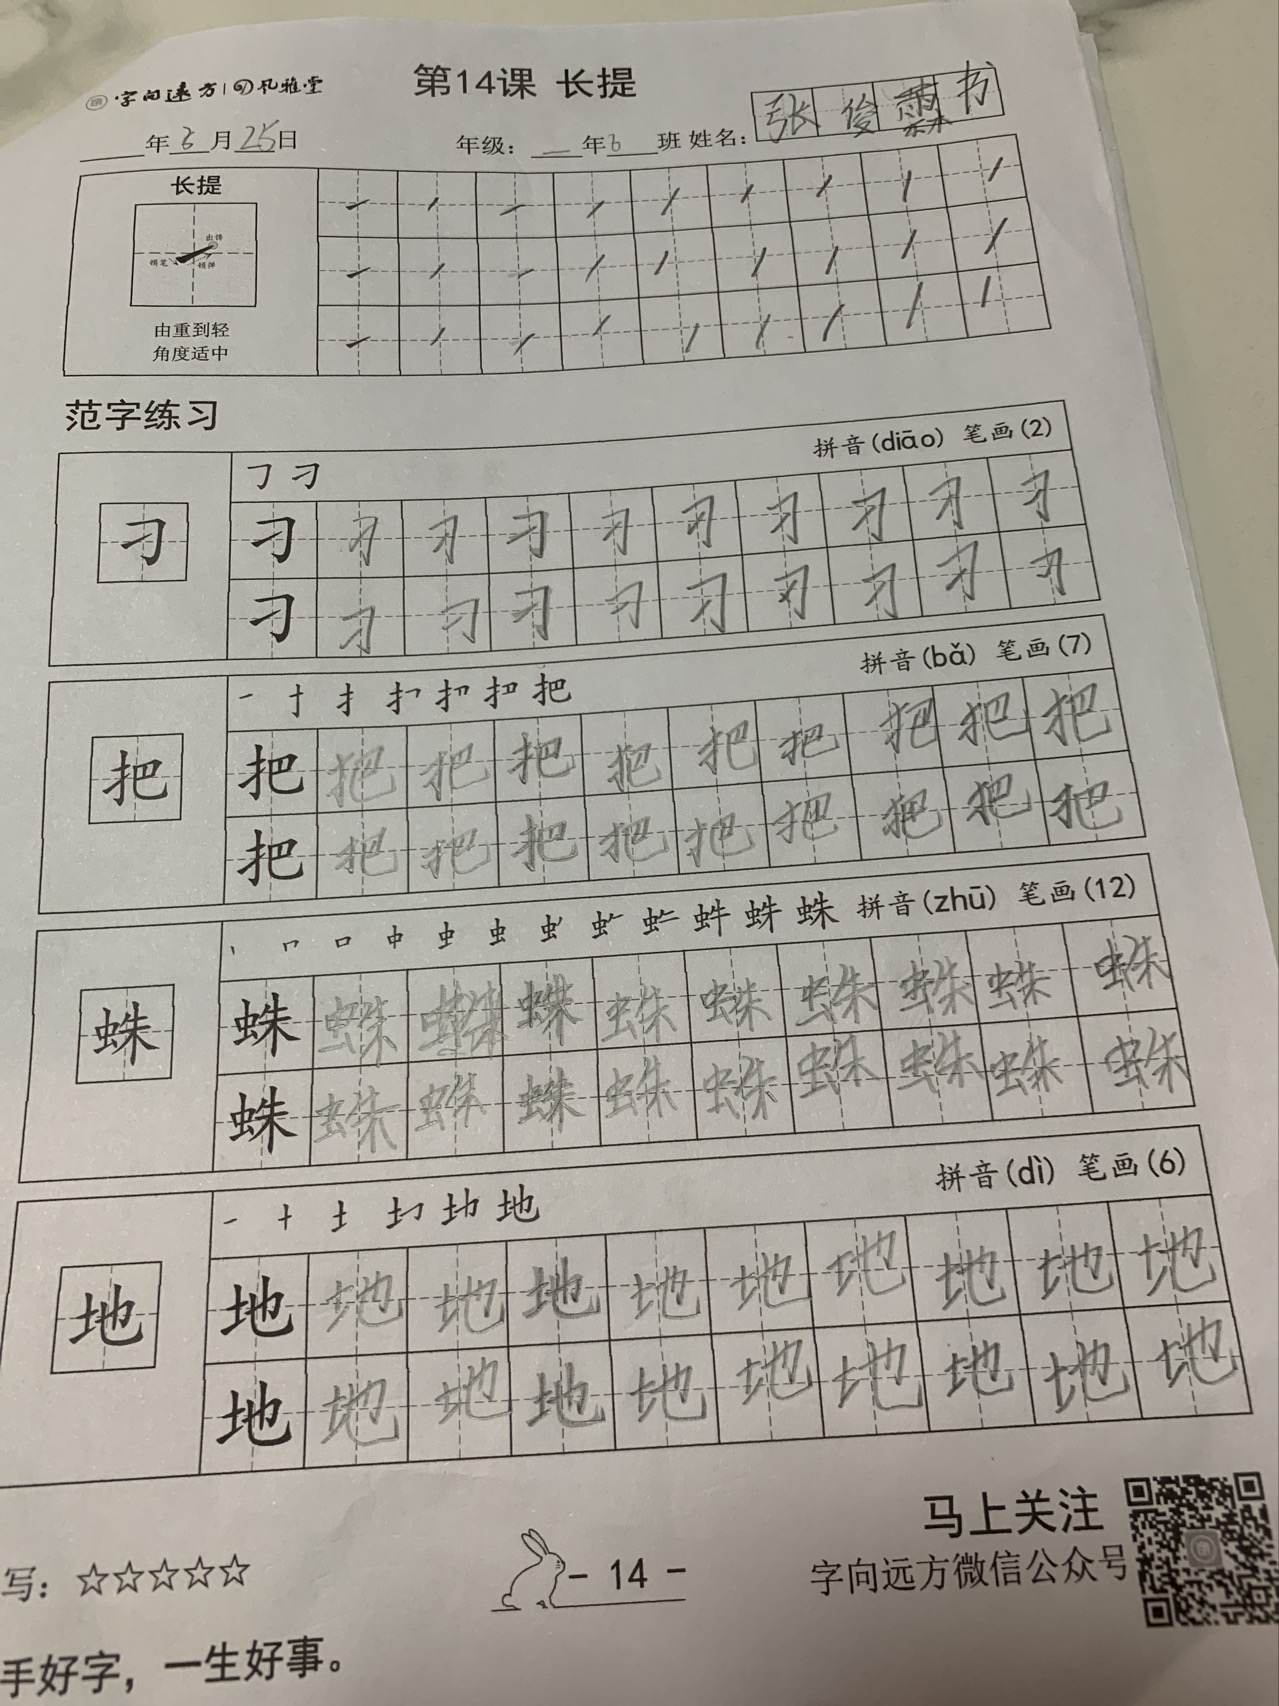 字向远方 凡雅堂
第14课 长提
张俊霖书
年3月25日 年级：一年6班 姓名：
长提
出锋
顿笔
轻弹
由重到轻
角度适中
范字练习
拼音(diāo) 笔画(2)
刁 刁 刁 刁 刁 刁 刁 刁 刁 刁 刁
刁 刁 刁 刁 刁 刁 刁 刁 刁 刁
把 拼音(bǎ) 笔画(7)
把 把 把 把 把 把 把 把 把 把 把
把 把 把 把 把 把 把 把 把 把
蛛 拼音(zhū) 笔画(12)
蛛 蛛 蛛 蛛 蛛 蛛 蛛 蛛 蛛 蛛 蛛
蛛 蛛 蛛 蛛 蛛 蛛 蛛 蛛 蛛 蛛
地 拼音(dì) 笔画(6)
地 地 地 地 地 地 地 地 地 地 地
地 地 地 地 地 地 地 地 地 地
写：☆☆☆☆☆
- 14 -
马上关注
字向远方微信公众号
手好字，一生好事。